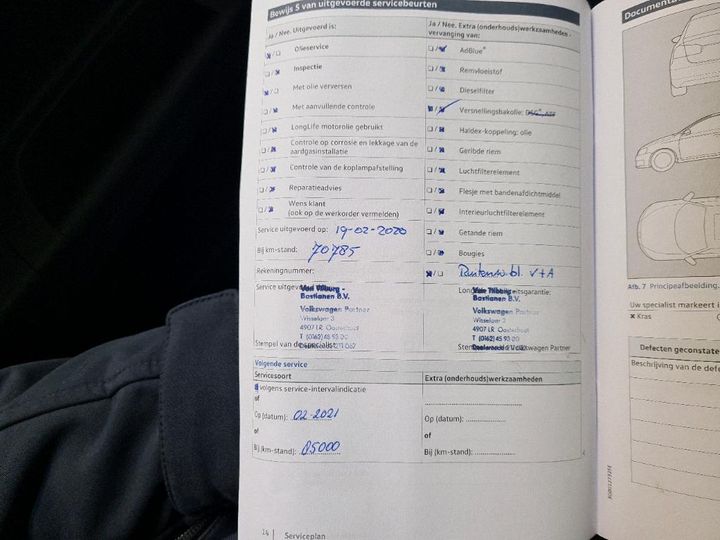 Bewijs 5 van uitgevoerde servicebeurten
Ja / Nee. Uitgevoerd is:
Olieservice
Inspectie
Met olie verversen
Met aanvullende controle
LongLife motorolie gebruikt
Controle op corrosie en lekkage van de
aardgasinstallatie
Controle van de koplampafstelling
Reparatieadvies
Wens klant
(ook op de werkorder vermelden)
Service uitgevoerd op: 19-02-2020
Bij km-stand: 70785
Rekeningnummer:
Service uitgevoerd
Van Tilburg -
Bastianen B.V.
Volkswagen Partner
Wisselaar 3
4907 LR Oosterhout
T (0162) 45 93 00
Stempel van de specialist
Ja / Nee. Extra (onderhouds)werkzaamheden -
vervanging van:
AdBlue®
Remvloeistof
Dieselfilter
Versnellingsbakolie: DSG®, ATF
Haldex-koppeling: olie
Geribde riem
Luchtfilterelement
Flesje met bandenafdichtmiddel
Interieurluchtfilterelement
Getande riem
Bougies
V+A
Van Tilburg -
Bastianen B.V.
Volkswagen Partner
Wisselaar 3
4907 LR Oosterhout
T (0162) 45 93 00
Volkswagen Partner
Volgende service
Servicesoort
Extra (onderhouds)werkzaamheden
volgens service-intervalindicatie
of
Op (datum): 02-2021
of
Bij (km-stand): 85000
Op (datum):
of
Bij (km-stand):
14 Serviceplan
Documentat
Afb. 7 Principeafbeelding.
Uw specialist markeert i
Kras
Defecten geconstate
Beschrijving van de defe